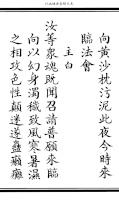 向黃沙枕污泥此夜今時來
臨法會
主白
汝等衆魂既聞召請普願來臨
向以幻身濁穢致風寒暑濕
之相攻色性顛迷遂蠱癩癰